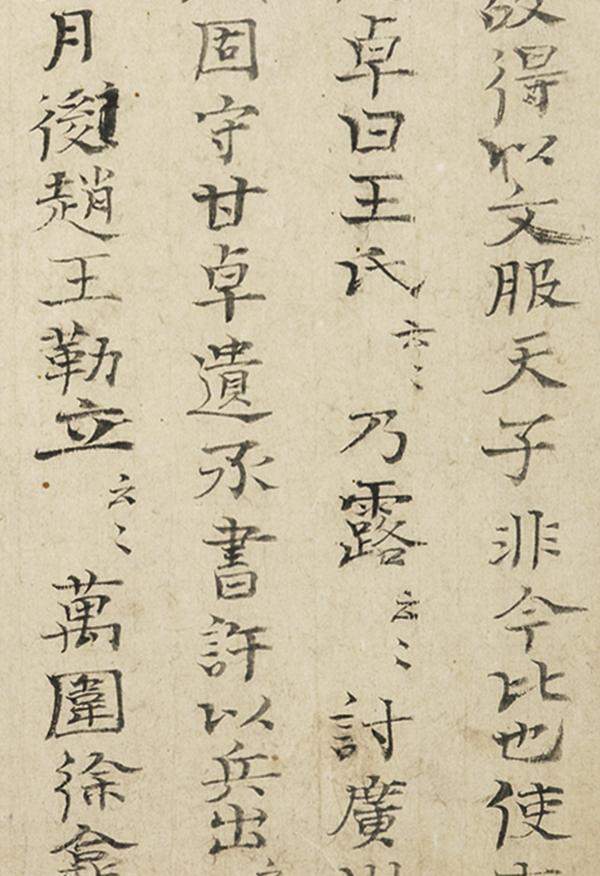 故得以文服天子非今比也使
卓曰王氏云〻乃露云〻討廣
固守甘卓遺承書許以兵出
月後趙王勒立云〻萬圍徐龕